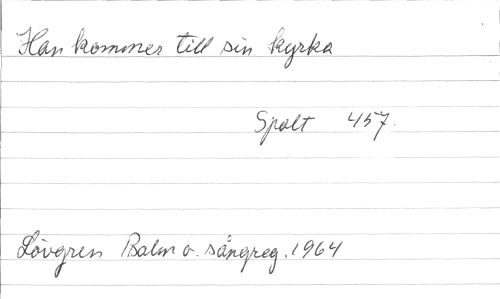 Han kommer till sin kyrka
Spalt 457.
Lövgren Psalm o. sångreg. 1964